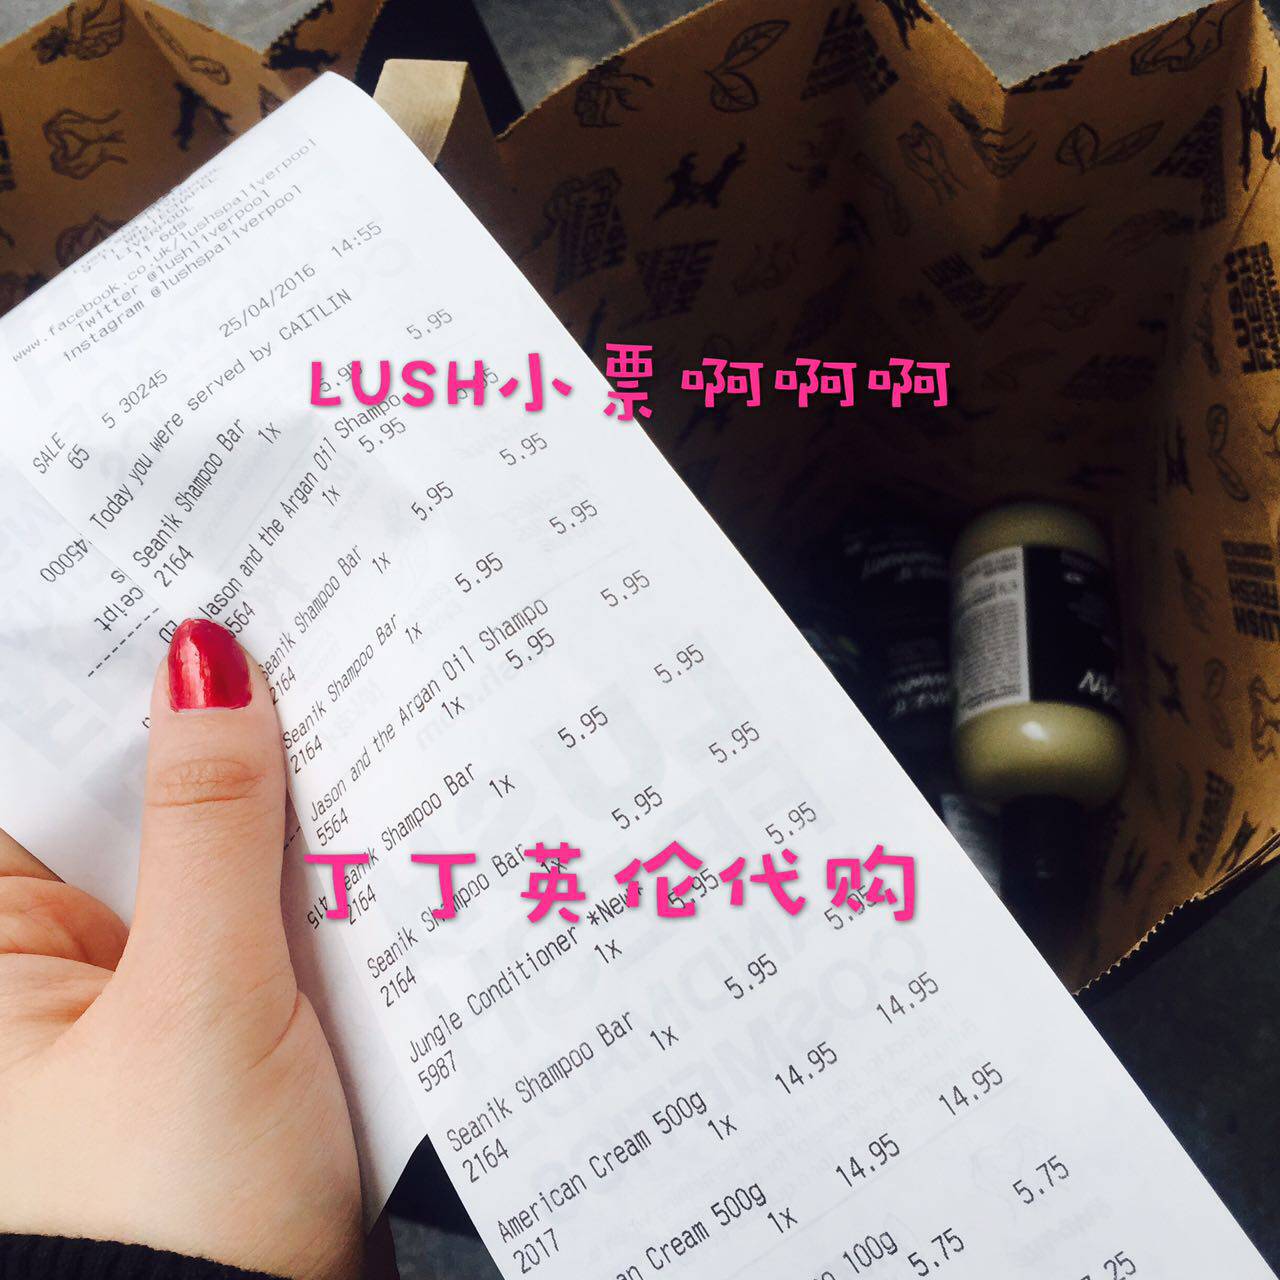 LIVERPOOL
L1 6DS
www.facebook.co.uk/lushspaliverpool
Twitter @lushliverpool
instagram @lushspaliverpool
25/04/2016 14:55
SALE 5 30245
65
Today you were served by CAITLIN
Seanik Shampoo Bar 5.95
2164 1x 5.95
Jason and the Argan Oil Shampo 5.95
5564 1x 5.95
Seanik Shampoo Bar 5.95
2164 1x 5.95
Seanik Shampoo Bar 5.95
2164 1x 5.95
Jason and the Argan Oil Shampo 5.95
5564 1x 5.95
Seanik Shampoo Bar 5.95
2164 1x 5.95
Seanik Shampoo Bar 5.95
2164 1x 5.95
Jungle Conditioner *New* 5.95
5987 1x 5.95
Seanik Shampoo Bar 5.95
2164 1x 5.95
American Cream 500g 14.95
2017 1x 14.95
Cream 500g 14.95
1x 14.95
100g 5.75
5.75
LUSH小票啊啊啊
丁丁英伦代购
LUSH
FRESH
HANDMADE
COSMETICS